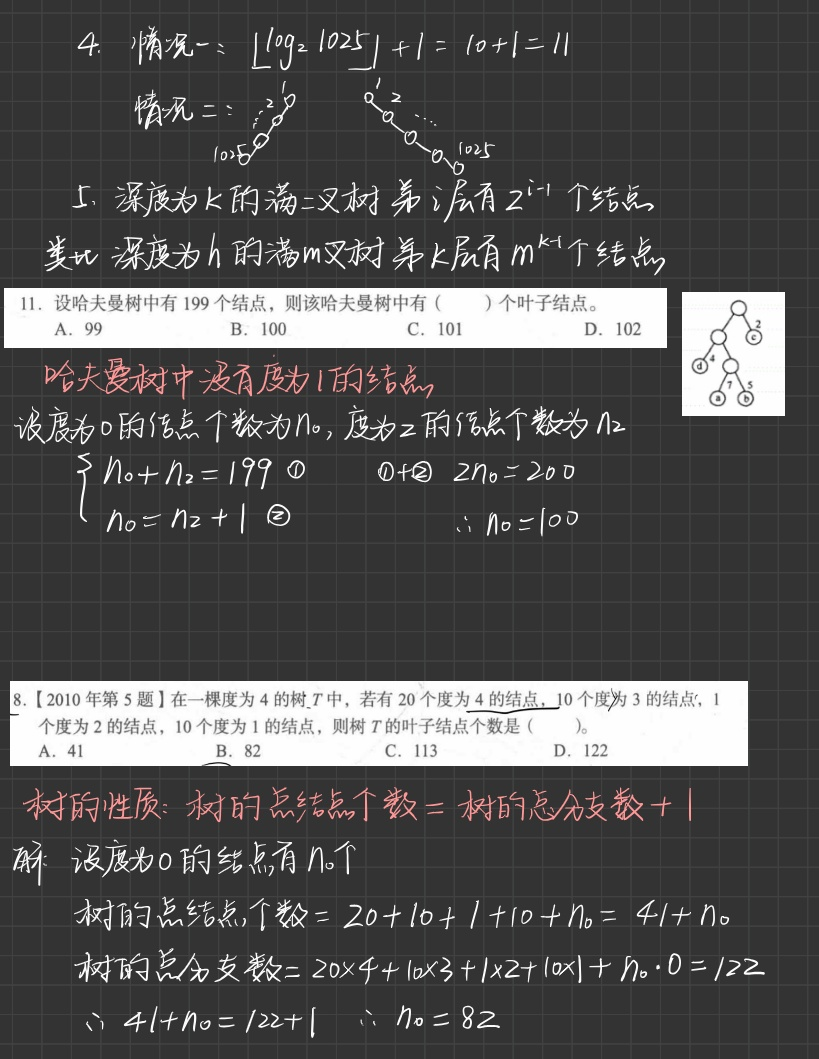 4. 情况一: ⌊log₂ 1025⌋ + 1 = 10+1 = 11
情况二: 1 2 … 1025 1 2 … 1025
5. 深度为k的满二叉树第i层有2^{i-1}个结点
类比 深度为h的满m叉树第k层有m^{k-1}个结点
11. 设哈夫曼树中有 199 个结点，则该哈夫曼树中有（ ）个叶子结点。
A. 99 B. 100 C. 101 D. 102
2
c
d 4
7 5
a b
哈夫曼树中没有度为1的结点
设度为0的结点个数为n₀, 度为2的结点个数为n₂
{ n₀+n₂=199 ① ①+② 2n₀=200
n₀=n₂+1 ② ∴ n₀=100
8.【2010 年第 5 题】在一棵度为 4 的树 T 中，若有 20 个度为 4 的结点，10 个度为 3 的结点，1
个度为 2 的结点，10 个度为 1 的结点，则树 T 的叶子结点个数是（ ）。
A. 41 B. 82 C. 113 D. 122
树的性质: 树的总结点个数 = 树的总分支数 + 1
解: 设度为0的结点有n₀个
树的总结点个数 = 20+10+1+10+n₀ = 41+n₀
树的总分支数 = 20×4+10×3+1×2+10×1+n₀·0 = 122
∴ 41+n₀=122+1 ∴ n₀=82